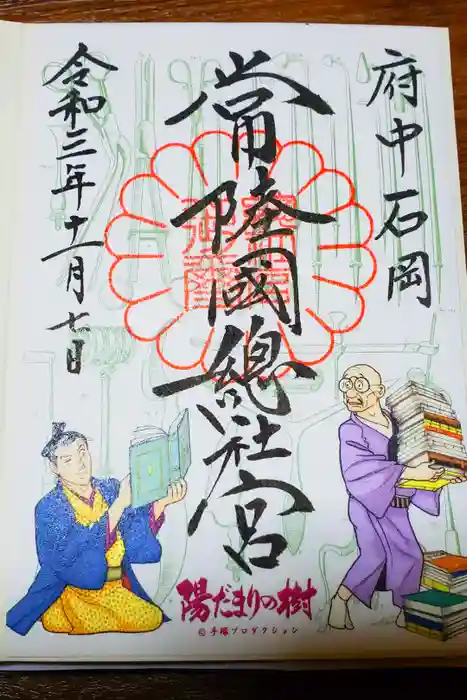 府中石岡
常陸國總社宮
令和三年十一月七日
陽だまりの樹
©手塚プロダクション